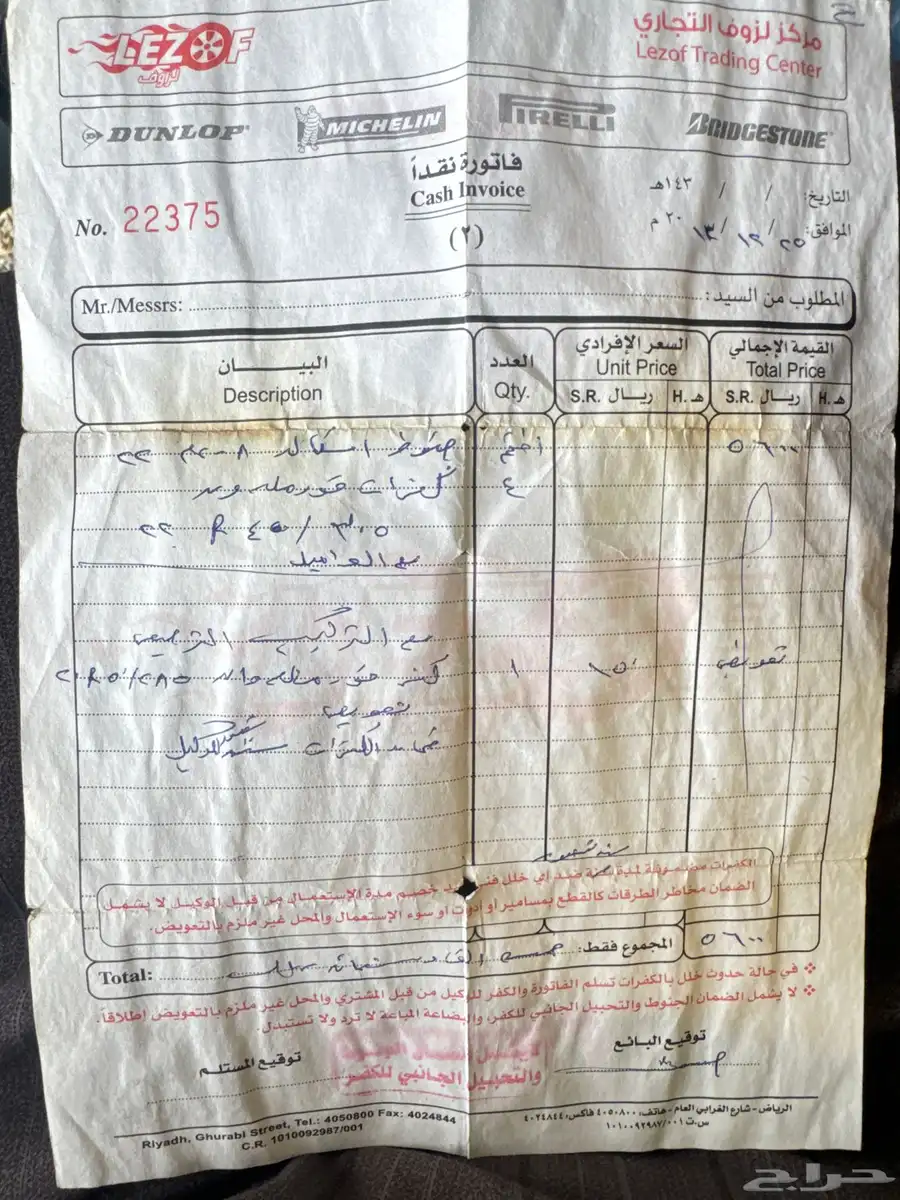 LEZOF
لزوف
مركز لزوف التجاري
Lezof Trading Center
DUNLOP
MICHELIN
PIRELLI
BRIDGESTONE
فاتورة نقداً
Cash Invoice
(٢)
No. 22375
التاريخ: / / ١٤٣هـ
الموافق: ٢٥ / ١٢ / ١٣ ٢٠ م
Mr./Messrs: المطلوب من السيد:
البيــــان
Description
العدد
Qty.
السعر الإفرادي
Unit Price
S.R. ريـال H. هـ
القيمة الإجمالي
Total Price
S.R. ريـال H. هـ
٢٢ ٥٦٠٠
كفرات ٤
٣٠٥ / ٤٥ R ٢٢
مع
مع التركيب
كفر ٢٨٥/٥ ١ ١٥٠ تعويض
تعويض
ضمان الكفرات سنه الوكيل
الكفرات مضمونة لمدة سنة ضد أي خلل فني خصم مدة الإستعمال من قبل الوكيل لا يشمل
الضمان مخاطر الطرقات كالقطع بمسامير او أدوات او سوء الإستعمال والمحل غير ملزم بالتعويض.
Total: خمسة الف ستمائة ريال المجموع فقط: ٥٦٠٠
في حالة حدوث خلل بالكفرات تسلم الفاتورة والكفر للوكيل من قبل المشتري والمحل غير ملزم بالتعويض إطلاقاً.
لا يشمل الضمان الجنوط والتحبيل الجانبي للكفر، والبضاعة المباعة لا ترد ولا تستبدل.
توقيع البائع
توقيع المستلم
لا يشمل الضمان
والتحبيل الجانبي للكفر
الرياض - شارع الغرابي العام - هاتف: ٤٠٥٠٨٠٠ فاكس: ٤٠٢٤٨٤٤
س.ت ١٠١٠٠٩٢٩٨٧/٠٠١
Riyadh, Ghurabi Street, Tel.: 4050800 Fax: 4024844
C.R. 1010092987/001
حراج